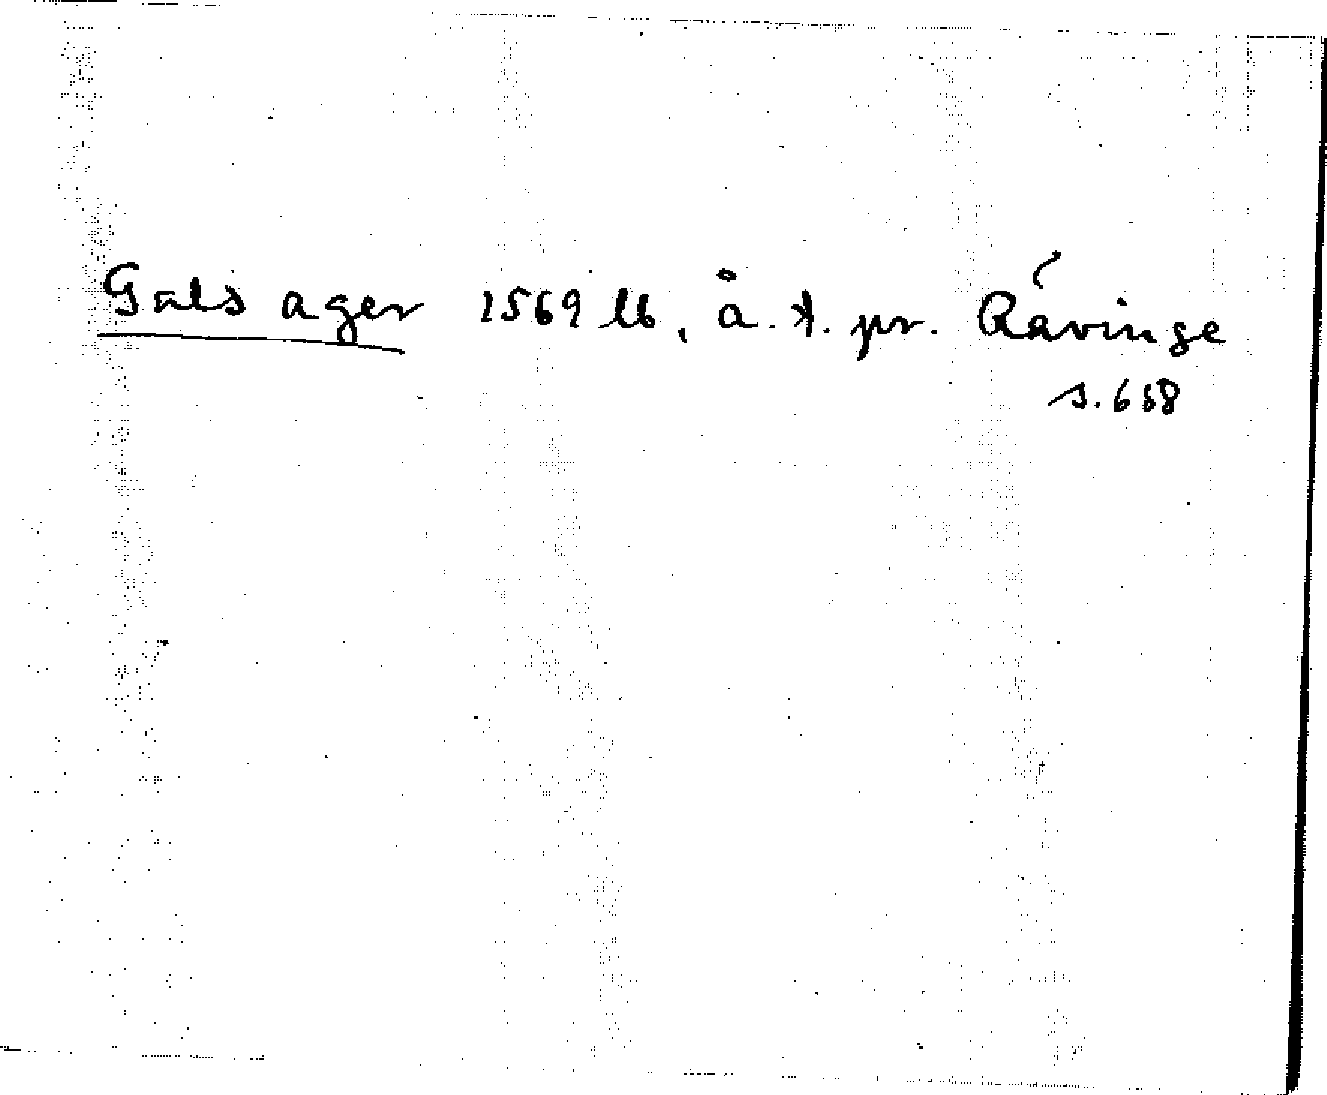 Gals ager 1569 lb, å.t. pr. Rávinge
s.658